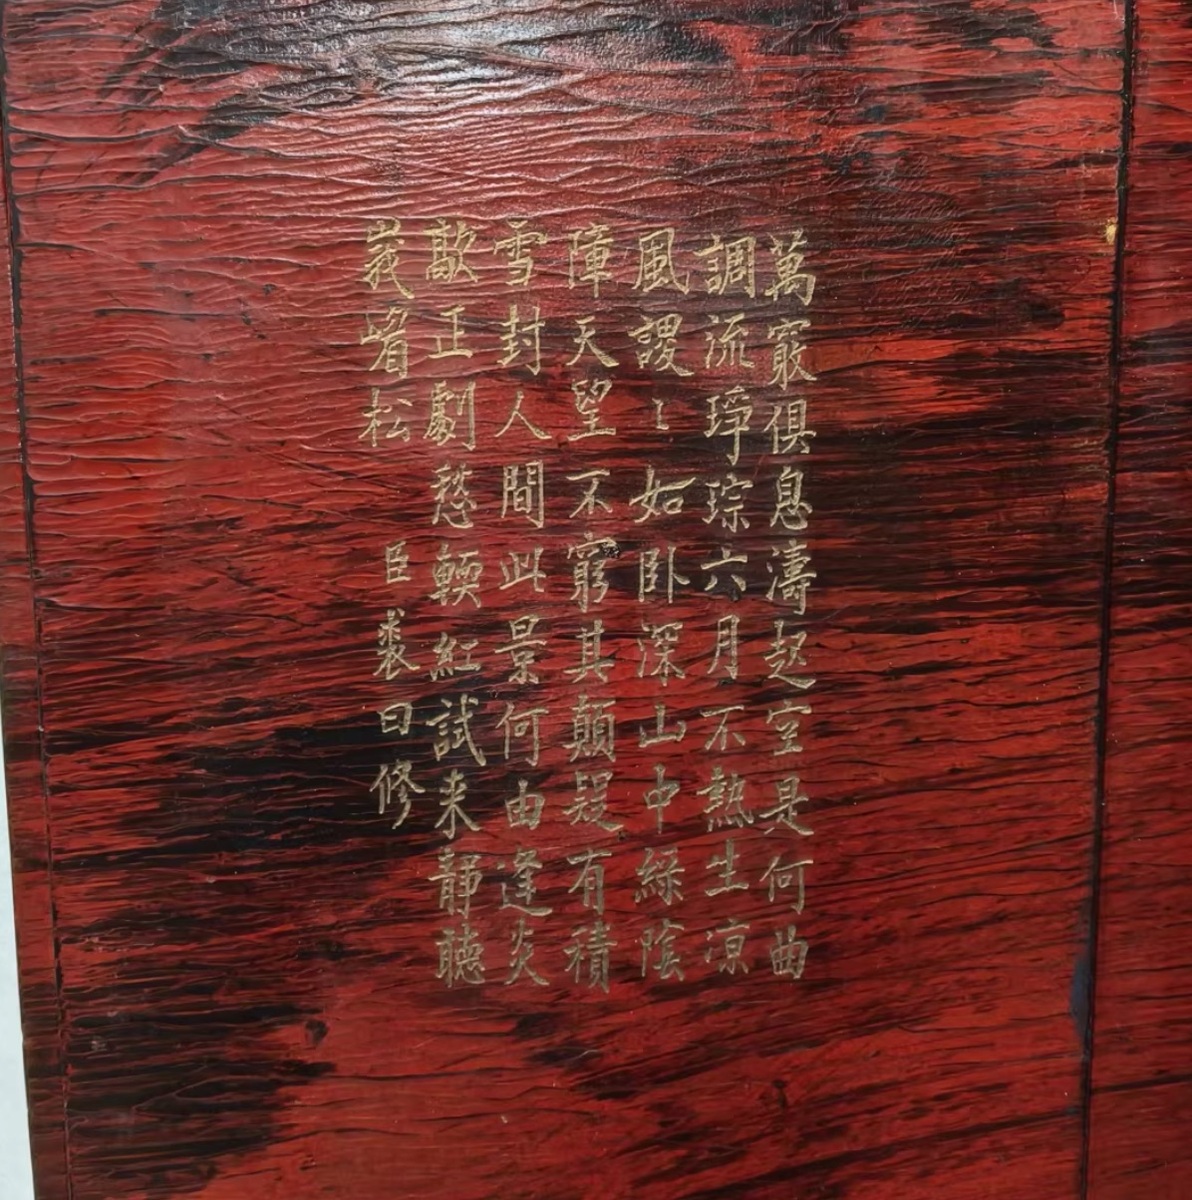 萬竅俱息濤起空是何曲
調流琤琮六月不熱生涼
風謖〻如卧深山中綠陰
障天望不窮其顛疑有積
雪封人間此景何由逢炎
歊正劇愁輭紅試来靜聽
峩嵋松 臣裘曰修